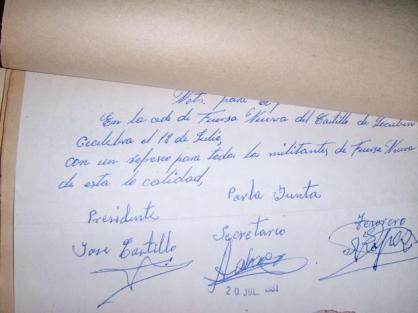 Nota para
En la sede de Fuersa Nueva del Castillo de Locubin
cecelebra el 18 de Julio,
con un refresco para todos los militantes de Fuersa Nueva
de esta localidad,
Porla Junta
Presidente Secretario Tesorero
Jose Castillo
20 JUL. 1981